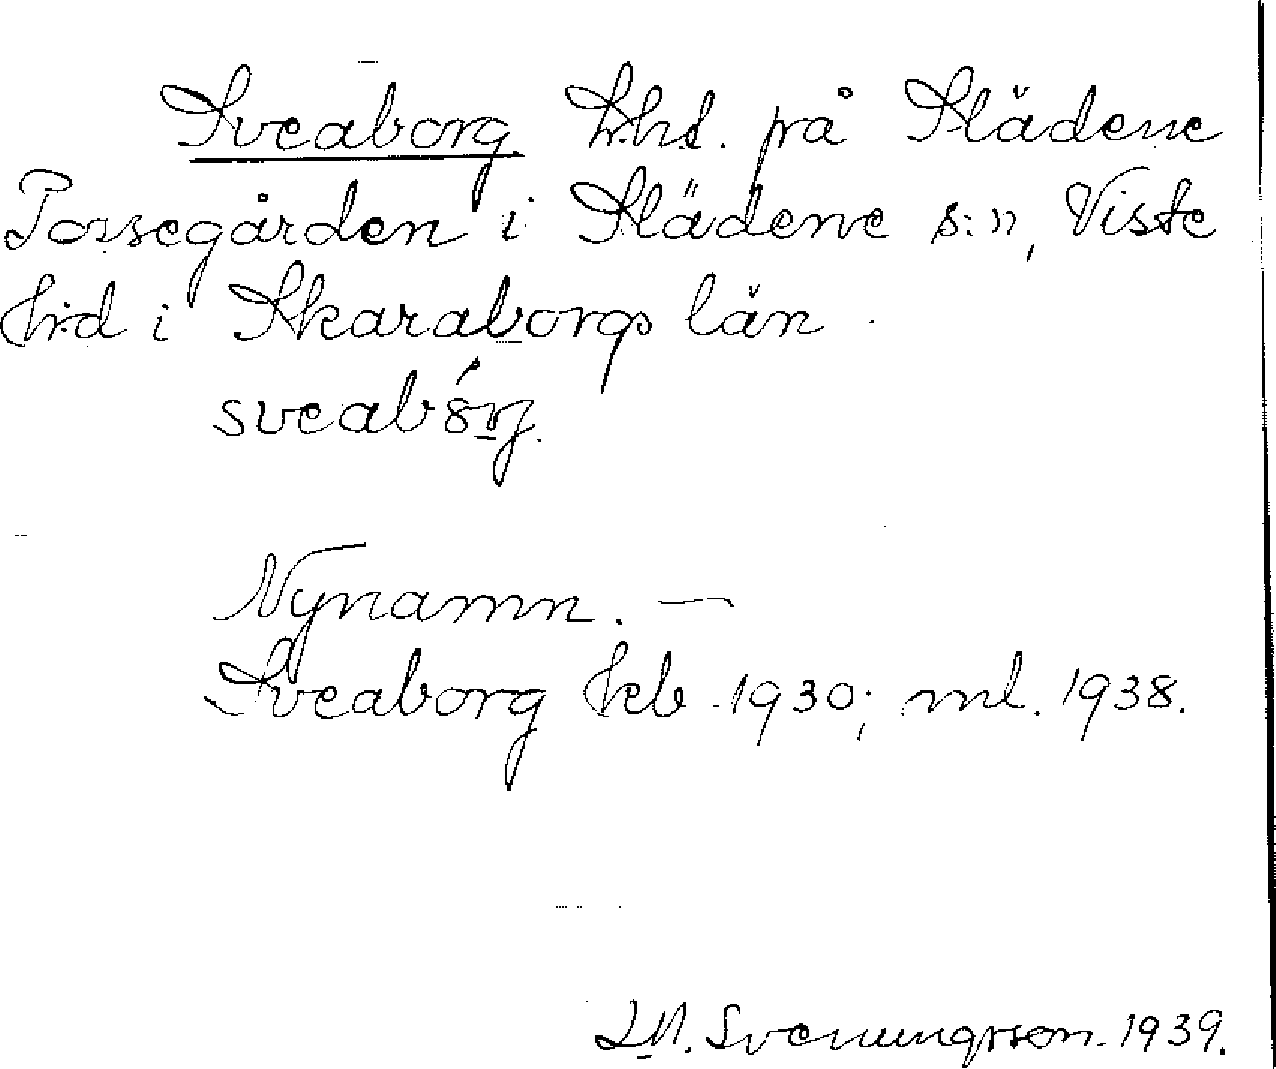 Sveaborg hhd. på Slädene
Possegården i Slädene s:n, Viste
hrd i Skaraborgs län.
sveabórj.
Nynamn. —
Sveaborg kb 1930; ml. 1938.
Svenungsson 1939.